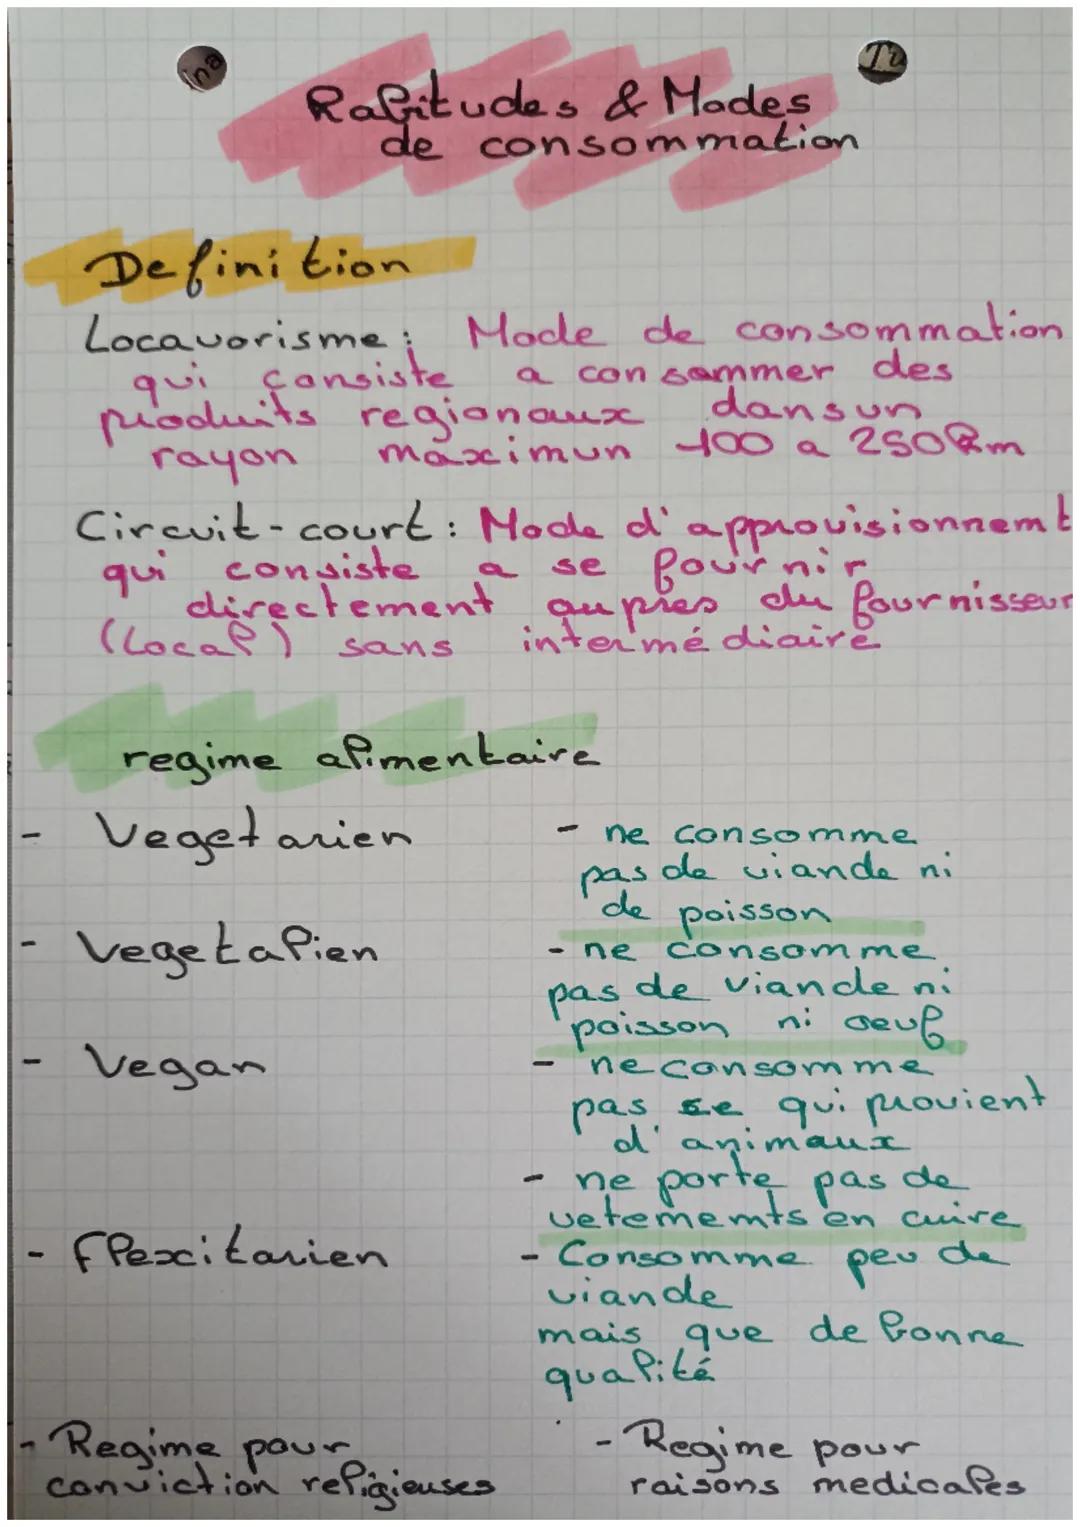 ina
Ti
Habitudes & Modes
de consommation
Definition
Locavorisme : Mode de consommation
qui consiste a consommer des
produits regionaux dans un
rayon maximun 100 a 250km
Circuit-court : Mode d'approvisionnemt
qui consiste a se fournir
directement aupres du fournisseur
(local) sans intermédiaire
regime alimentaire
- Vegetarien
- ne consomme
pas de viande ni
de poisson
- Vegetalien
- ne consomme
pas de viande ni
poisson ni oeuf
- Vegan
- ne consomme
pas se qui provient
d'animaux
- ne porte pas de
vetememts en cuire
- Flexitarien
- Consomme peu de
viande
mais que de bonne
qualité
- Regime pour
conviction religieuses
- Regime pour
raisons medicales